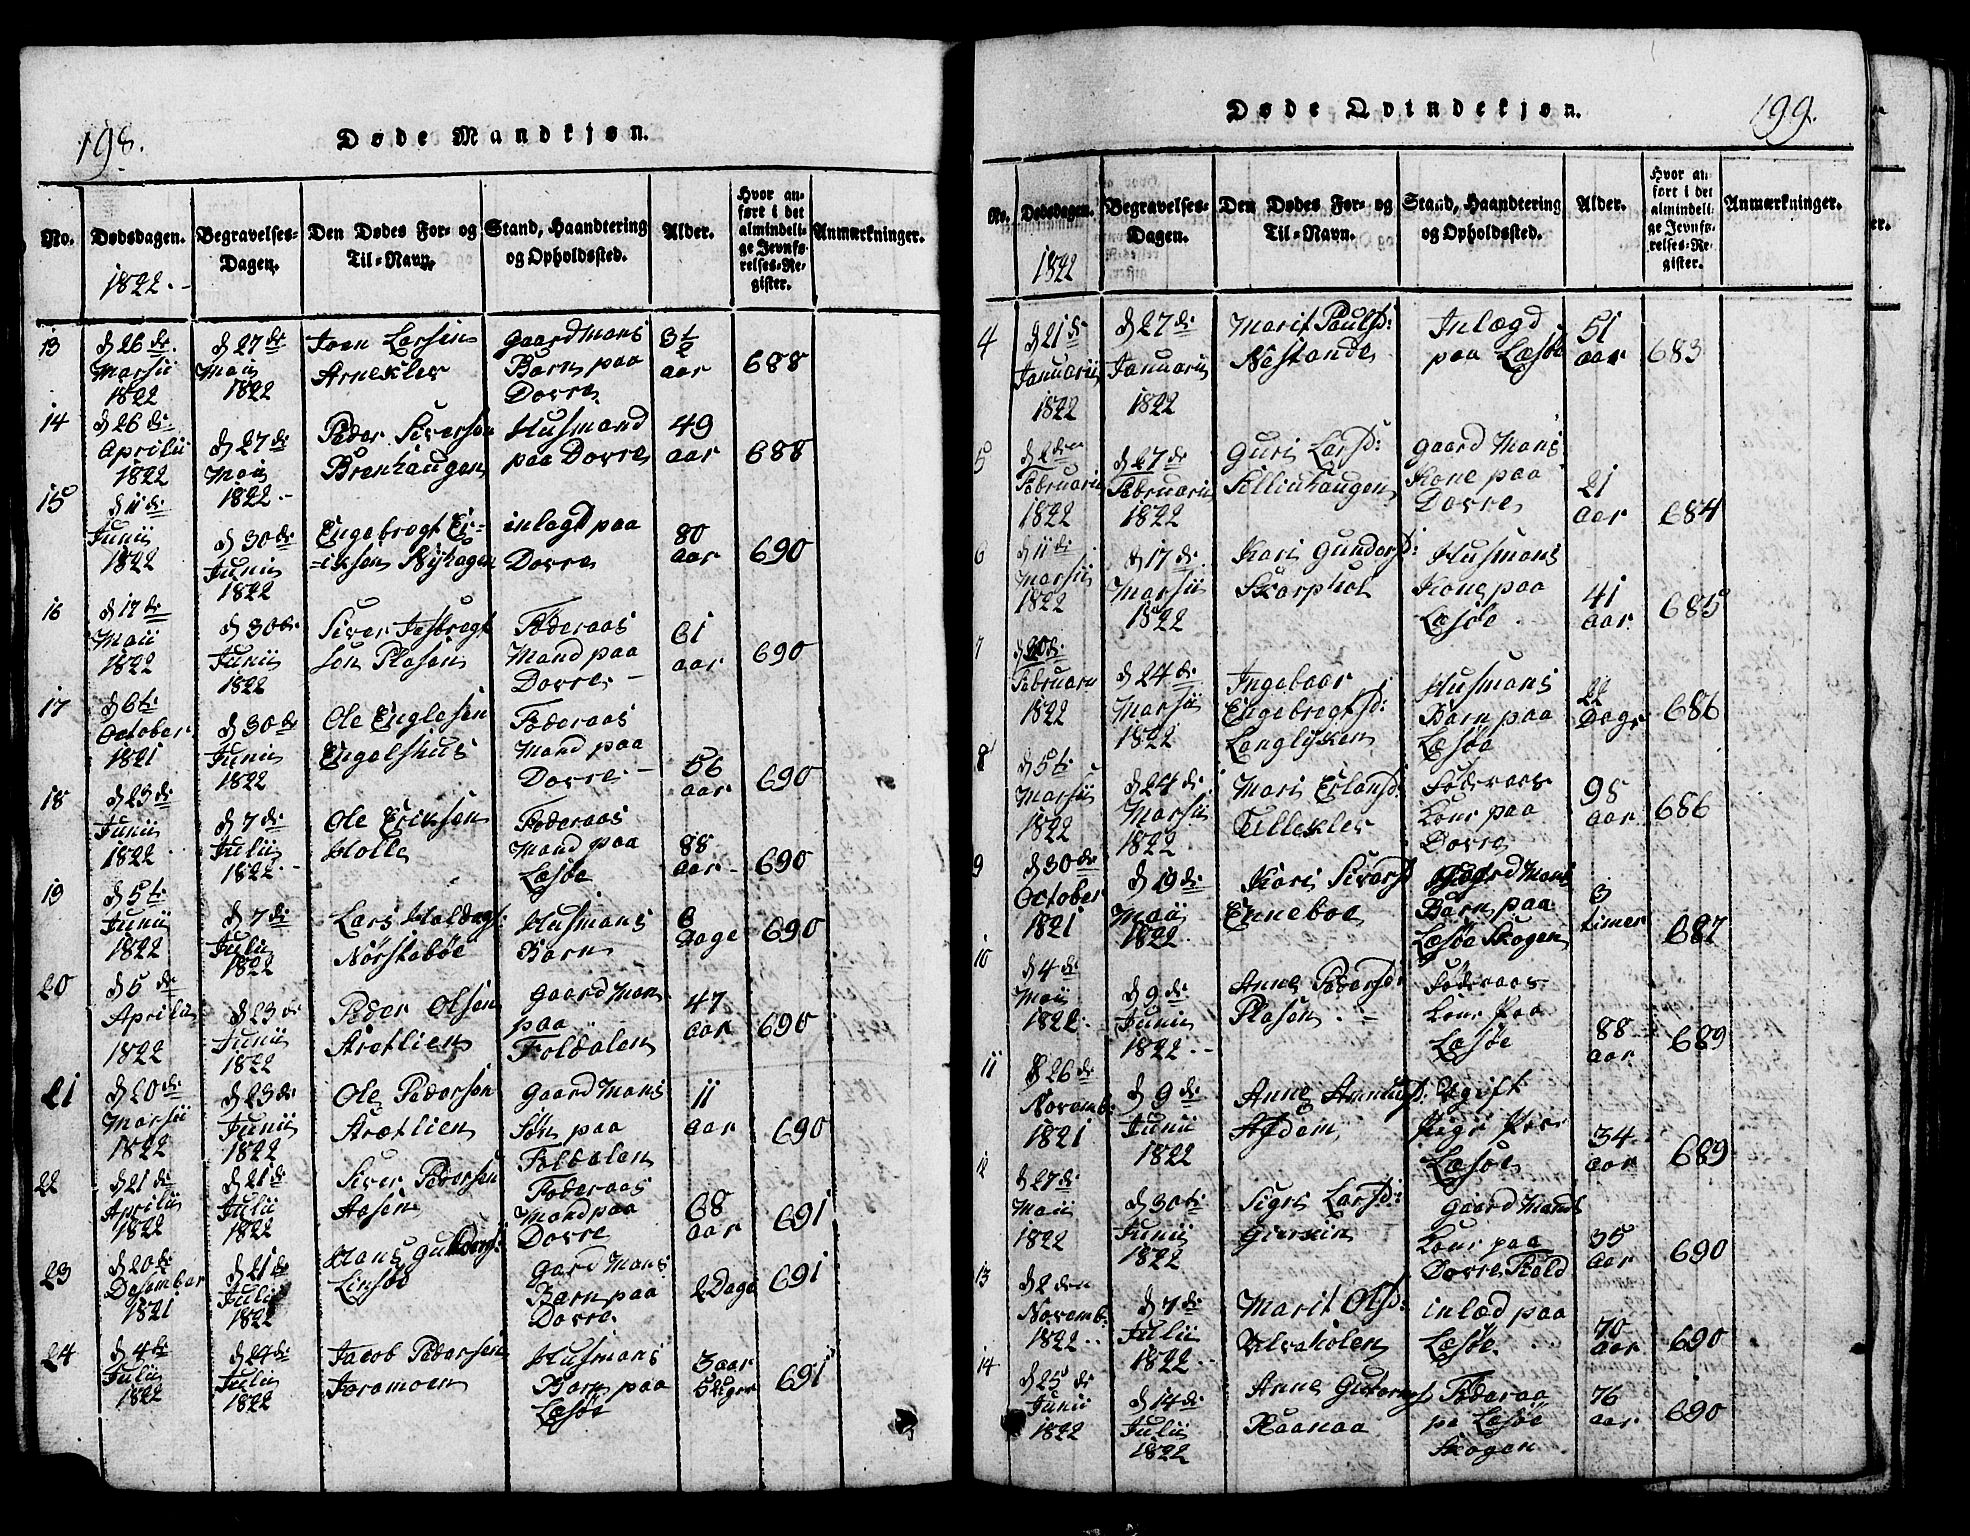 198.
Døde Mandkjøn.
No. Dødsdagen. Begravelses-Dagen. Den Dødes For- og Til-Navn. Stand, Haandtering og Opholdssted. Alder. Hvor anført i det almindelige Jevnførelses-Register. Anmærkninger.
1822.
13 d 26de Marsii 1822 d 27de Maii 1822 Joen Larsen Arneklev Gaard Mans Barn paa Dovre 3½ aar 688
14 d 26de Aprilii 1822 d 27de Maii 1822 Peder Siverson Brenhaugen Husmand paa Dovre 49 aar 688
15 d 11de Junii 1822 d 30de Junii 1822 Engebregt Er=iksen Nyhagen inlagt paa Dovre 80 aar 690
16 d 17de Maii 1822 d 30te Junii 1822 Siver Jesbregt sen Plasen Føderaas Mand paa Dovre 61 aar 690
17 d 6te October 1821 d 30de Junii 1822 Ole Englesen Engelshus Føderaas Mand paa Dovre 56 aar 690
18 d 23de Junii 1822 d 7de Julii 1822 Ole Eriksen Holle Føderaas Mand paa Læsøe 88 aar 690
19 d 5te Junii 1822 d 7de Julii 1822 Lars Haldogs: Nørstebøe Husmans Barn 6 Dage 690
20 d 5de Aprilii 1822 d 23de Junii 1822 Peder Olsen Stretlien Gaard Man paa Foldalen 47 aar 690
21 d 20de Marsii 1822 d 23de Junii 1822 Ole Pederson Stretlien Gaard Mans Søn paa Foldalen 11 aar 690
22 d 21de Aprilii 1822 d 21de Julii 1822 Siver Pedersen Aasen Føderaas Mand paa Dovre 68 aar 691
23 d 20de Desember 1821 d 21de Julii 1822 Hans Linsøe Gard Mans Barn paa Dovre 2 Dage 691
24 d 4de Julii 1822 d 24de Julii 1822 Jacob Pedersen Joramoen Husmans Barn paa Læsøe 3 aar 5 Uger 691
199.
Døde Qvindekjøn.
No. Dødsdagen. Begravelses-Dagen. Den Dødes For- og Til-Navn. Stand, Haandtering og Opholdssted. Alder. Hvor anført i det almindelige Jevnførelses-Register. Anmærkninger.
1822
4 d 21de Januarii 1822 d 27de Januarii 1822 Marit Paulsd: Nestande Inlægd paa Læsøe 51 aar 683
5 d 2den Februarii 1822 d 27de Februarii 1822 Guri Larsd: Sellinhaugen Gaard Mans Kone paa Dovre 21 aar 684
6 d 11de Marsii 1822 d 17de Marsii 1822 Kari Gundersd: Skarphol Husmans Kone paa Læsøe 41 aar 685
7 d 20de Februarii 1822 d 24de Marsii 1822 Ingeboer Engebregtsd: Langlyken Husmans Barn paa Læsøe 22 Dage 686
8 d 5te Marsii 1822 d 24de Marsii 1822 Mari Erlansd: Tilleklev Føderaas Kone paa Dovre 95 aar 686
9 d 30de October 1821 d 19de Maii 1822 Kari Siversd Enneboe Gaard Mans Barn paa Læsøe Skogen 3 timer 687
10 d 4de Maii 1822 d 9de Junii 1822 Anne Pedersd: Plasen Føderaas Kone paa Læsøe 88 aar 689
11 d 26de Novemb: 1821 d 9de Junii 1822 Anne Amundsd: Ugift Pige Læsøe 34 aar 689
12 d 27de Maii 1822 d 30te Junii 1822 Sigri Larsd: Gaard Mands Kone paa Dovre 35 aar 690
13 d 2den Novemb: 1822 d 7de Julii 1822 Marit Olsd: Ulvaholen inlæd paa Læsøe 70 aar 690
14 d 25de Junii 1822 d 14de Julii 1822 Anne Raanaa Føderaa pa Læsøe Skogen 76 aar 690